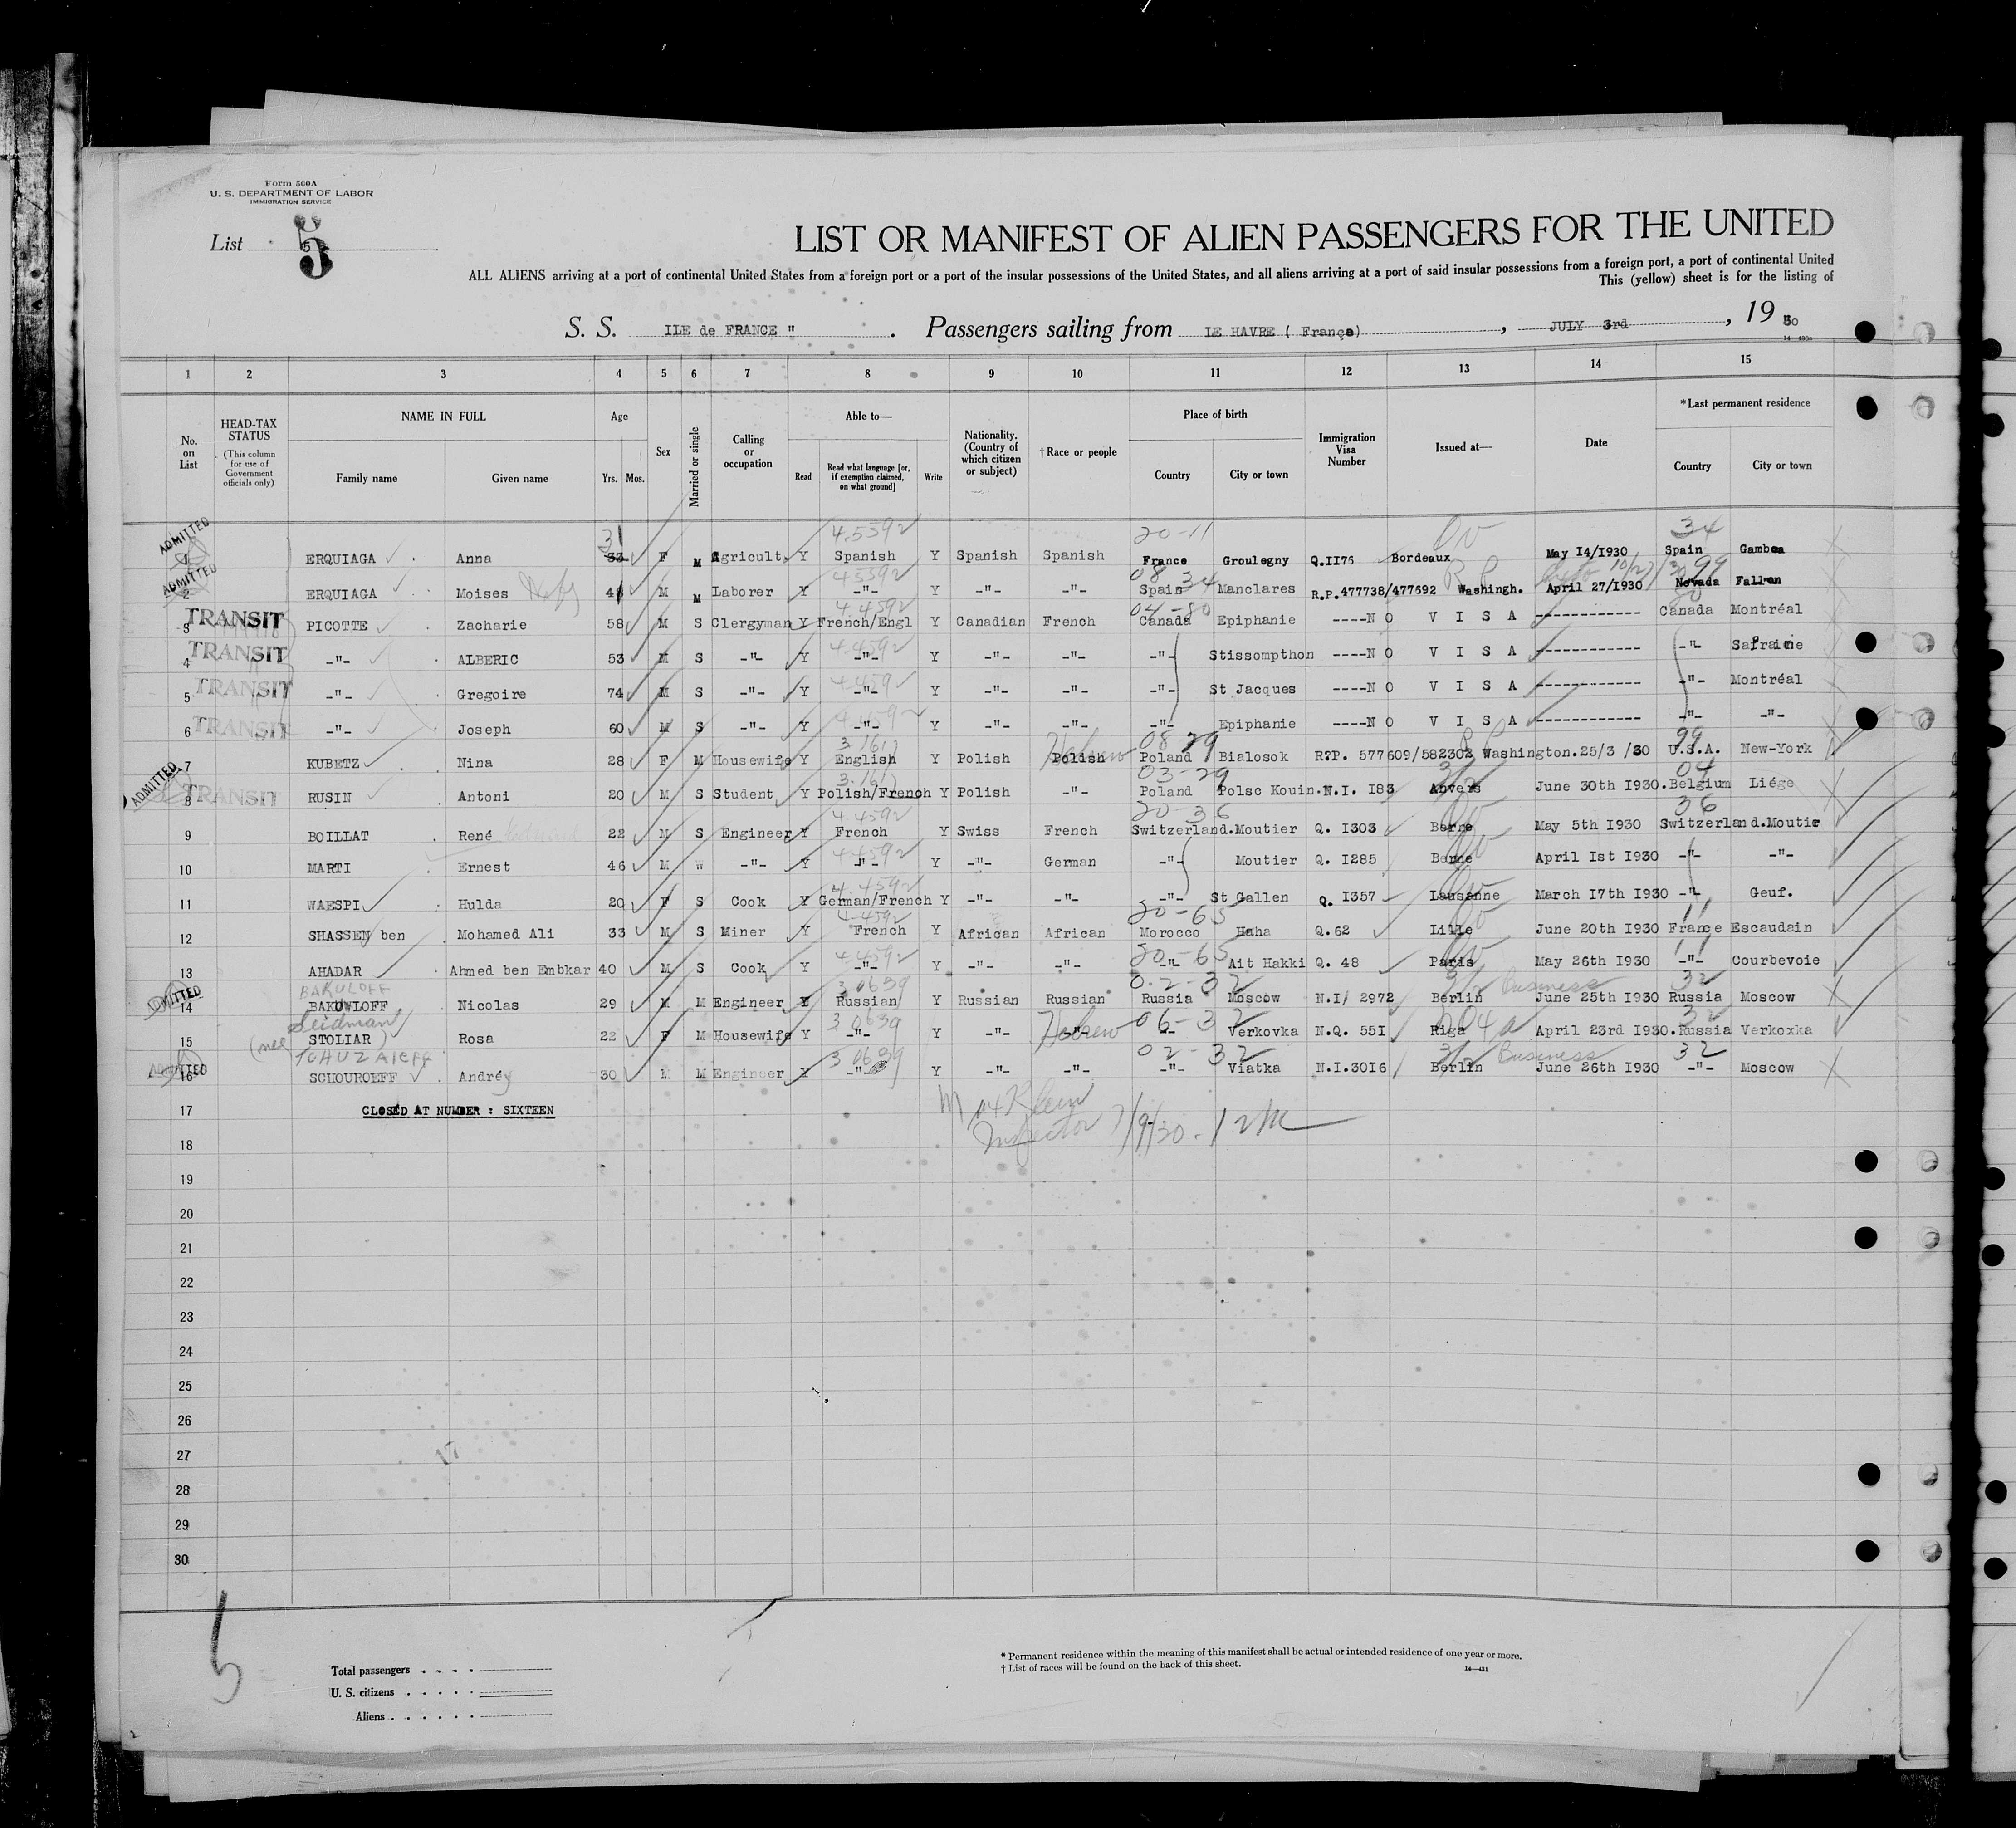 Form 500A
U. S. DEPARTMENT OF LABOR
IMMIGRATION SERVICE
List 5
5
LIST OR MANIFEST OF ALIEN PASSENGERS FOR THE UNITED
ALL ALIENS arriving at a port of continental United States from a foreign port or a port of the insular possessions of the United States, and all aliens arriving at a port of said insular possessions from a foreign port, a port of continental United
This (yellow) sheet is for the listing of
S. S. ILE de FRANCE " . Passengers sailing from LE HAVRE ( France) , JULY 3rd , 19 30
1 2 3 4 5 6 7 8 9 10 11 12 13 14 15
No. on List
HEAD-TAX STATUS (This column for use of Government officials only)
NAME IN FULL Family name Given name
Age Yrs. Mos.
Sex
Married or single
Calling or occupation
Able to— Read Read what language [or, if exemption claimed, on what ground] Write
Nationality. (Country of which citizen or subject)
† Race or people
Place of birth Country City or town
Immigration Visa Number
Issued at—
Date
*Last permanent residence Country City or town
31 4.5592 20-11 34
ADMITTED 1 ERQUIAGA Anna 33 F M Agricult. Y Spanish Y Spanish Spanish France Groulegny Q.II76 Bordeaux May I4/I930 Spain Gamboa
45592 08 34 R P 99
ADMITTED 2 ERQUIAGA Moises M M Laborer Y -"- Y -"- -"- Spain Manclares R.P.477738/477692 Washingh. April 27/I930 Nevada Fallon
4.4592 04-80
TRANSIT 3 PICOTTE Zacharie 58 M S Clergyman Y French/Engl Y Canadian French Canada Epiphanie ----N O V I S A ------------ Canada Montréal
4.4592
TRANSIT 4 -"- ALBERIC 53 M S -"- Y -"- Y -"- -"- -"- Stissompthon ----N O V I S A ------------ -"-
4459
TRANSIT 5 -"- Gregoire 74 M S -"- Y -"- Y -"- -"- -"- St Jacques ----N O V I S A ------------ -"- Montréal
TRANSIT 6 -"- Joseph 60 M S -"- Y -"- Y -"- -"- -"- Epiphanie ----N O V I S A ------------ -"- -"-
3 161 Hebrew 08 29 R P 99
7 KUBETZ Nina 28 F M Housewife Y English Y Polish Polish Poland Bialosok R.P. 577609/582302 Washington.25/3 /30 U.S.A. New-York
3.161 03-29 3/2 04
ADMITTED TRANSIT 8 RUSIN Antoni 20 M S Student Y Polish/French Y Polish -"- Poland Polsc Kouin.N.I. I83 Anvers June 30th I930.Belgium Liége
4.4592 20-36 36
9 BOILLAT René 22 M S Engineer Y French Y Swiss French Switzerland.Moutier Q. I303 Berne May 5th I930 Switzerland.Moutie
4.4592
10 MARTI Ernest 46 M W -"- Y -"- Y -"- German -"- Moutier Q. I285 Berne April Ist I930 -"- -"-
4.4592
11 WAESPI Hulda 20 F S Cook Y German/French Y -"- -"- -"- St Gallen Q. I357 Lausanne March I7th I930 -"- Geuf.
4-4592 20-65 11
12 SHASSEN ben Mohamed Ali 33 M S Miner Y French Y African African Morocco Haha Q.62 Lille June 20th I930 France Escaudain
4.4592 20-65 11
13 AHADAR Ahmed ben Embkar 40 M S Cook Y -"- Y -"- -"- -"- Ait Hakki Q. 48 Paris May 26th I930 -"- Courbevoie
BAKULOFF 3 0639 02-32 3/2 Business 32
ADMITTED 14 BAKOWLOFF Nicolas 29 M M Engineer Y Russian Y Russian Russian Russia Moscow N.I/ 2972 Berlin June 25th I930 Russia Moscow
Seidman 3 0639 Hebrew 06-32 32
15 (nee STOLIAR) Rosa 22 F M Housewife Y -"- Y -"- -"- -"- Verkovka N.Q. 55I Riga April 23rd I930.Russia Verkoxka
3 0639 02-32 3/2 Business 32
ADMITTED 16 SCHOUROEFF Andréy 30 M M Engineer Y -"- Y -"- -"- -"- Viatka N.I.30I6 Berlin June 26th I930 -"- Moscow
17 CLOSED AT NUMBER : SIXTEEN
Max Klein
Inspector 7/9/30
18
19
20
21
22
23
24
25
26
27
28
29
30
5
Total passengers
U. S. citizens
Aliens
* Permanent residence within the meaning of this manifest shall be actual or intended residence of one year or more.
† List of races will be found on the back of this sheet.
14—431
2